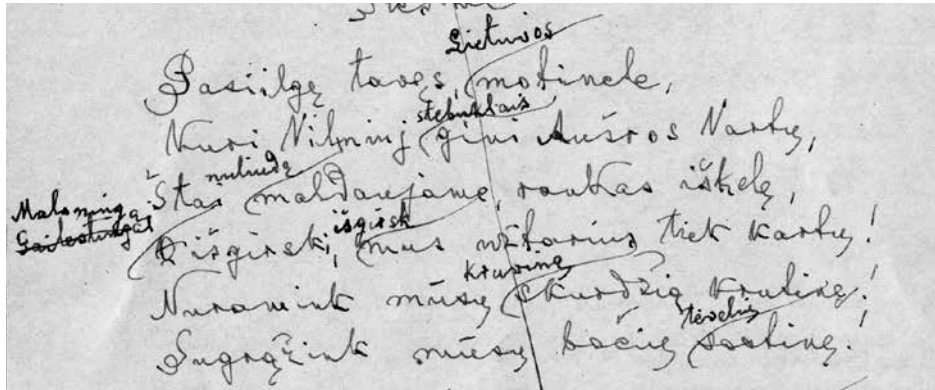 Lietuvos
Pasiilgę tavęs, motinele,
stebuklais
Kuri Vilniuj gini Aušros Vartų,
nuliudę
Štai maldaujame, rankas iškelę,
Maloningai
Gailestingai
išgirsk
O išgirsk, mus užtarius tiek kartų!
kruviną
Nuramink mūsų skurdžią krutinę!
tėvelių
Sugrąžink mūsų bočių sostinę!